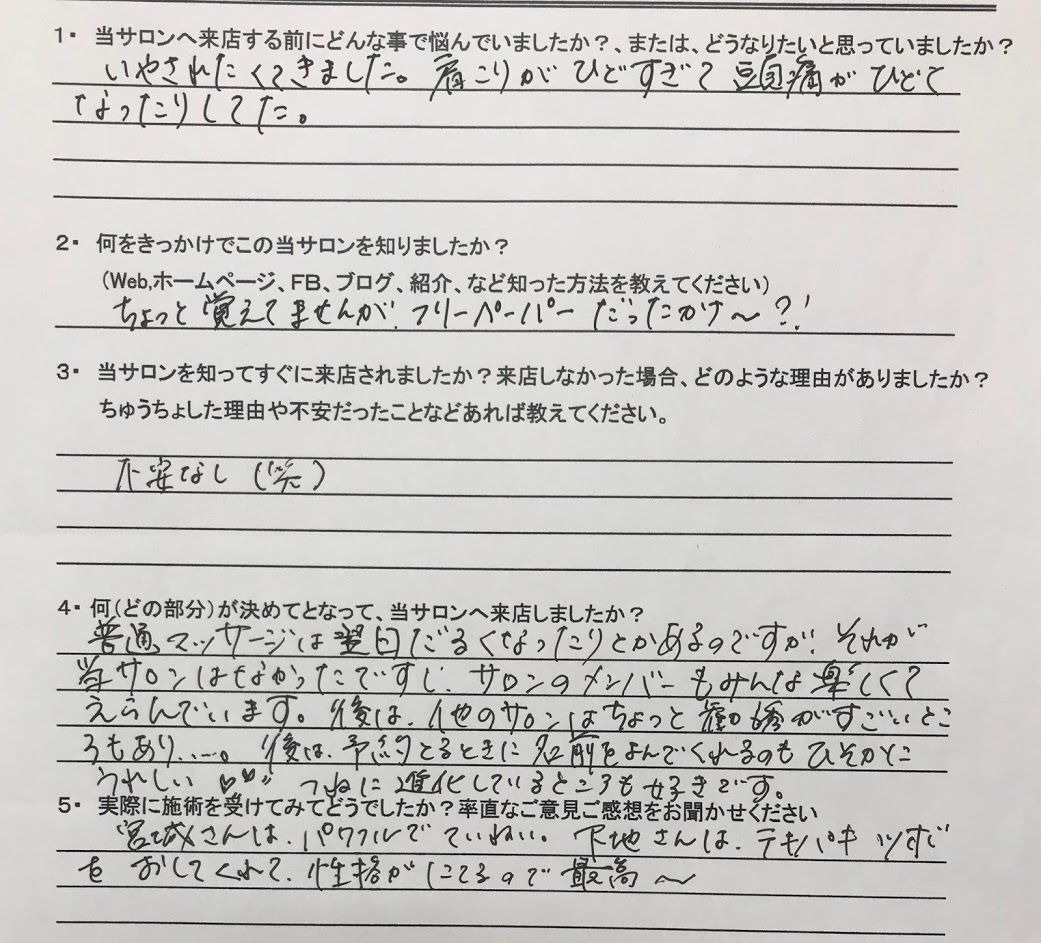 1・ 当サロンへ来店する前にどんな事で悩んでいましたか？、または、どうなりたいと思っていましたか？
いやされたくてきました。肩こりがひどすぎて頭痛がひどく
なったりしてた。
2・ 何をきっかけでこの当サロンを知りましたか？
（Web,ホームページ、FB、ブログ、紹介、など知った方法を教えてください）
ちょっと覚えてませんが、フリーペーパーだったかけ～？！
3・ 当サロンを知ってすぐに来店されましたか？来店しなかった場合、どのような理由がありましたか？
ちゅうちょした理由や不安だったことなどあれば教えてください。
不安なし（笑）
4・ 何（どの部分）が決めてとなって、当サロンへ来店しましたか？
普通マッサージは翌日だるくなったりとかあるのですが、それが
当サロンはなかったですし、サロンのメンバーもみんな楽しくて
えらんでいます。後は、他のサロンはちょっと勧誘がすごいとこ
ろもあり……。後は、予約とるときに名前をよんでくれるのもひそかに
うれしい♡♡ つねに進化しているところも好きです。
5・ 実際に施術を受けてみてどうでしたか？率直なご意見ご感想をお聞かせください
宮城さんは、パワフルでていねい。下地さんは、テキパキツボ
をおしてくれて、性格がにてるので最高～